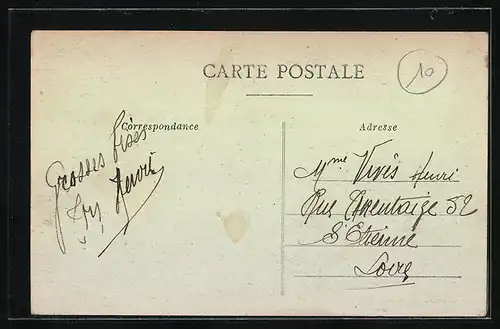 CARTE POSTALE
10
Correspondance
Grosses bises
Henri
Adresse
Mme Vivès Henri
Rue 52
St Etienne
Loire